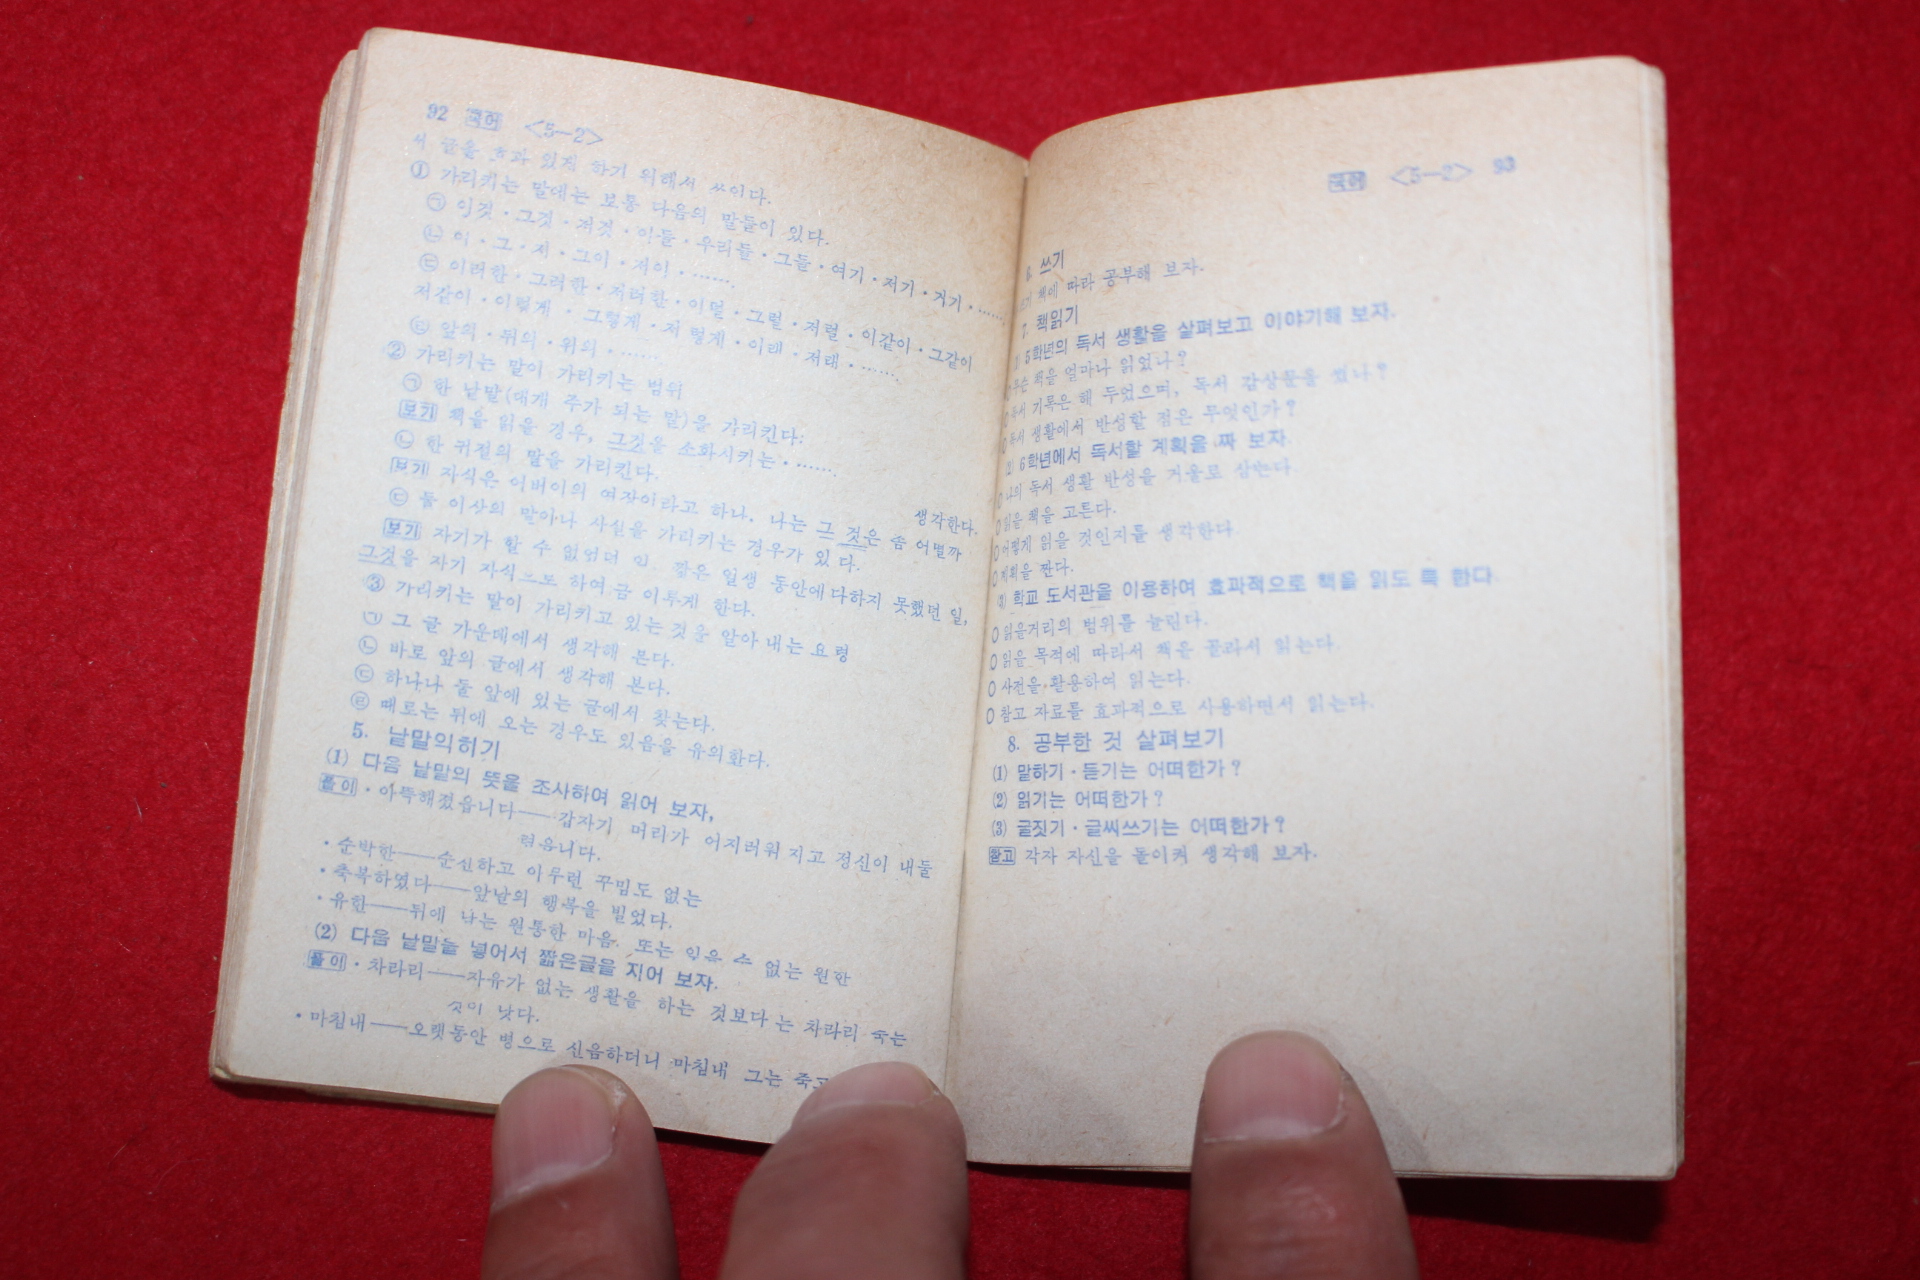 92 국어 <5—2>
서 글을 효과 있게 하기 위해서 쓰이다.
① 가리키는 말에는 보통 다음의 말들이 있다.
㉠ 이것·그것·저것·이들·우리들·그들·여기·저기·거기·……
㉡ 이·그·저·그이·저이·…….
㉢ 이러한·그러한·저러한·이럴·그럴·저럴·이같이·그같이
저같이·이렇게·그렇게·저렇게·이래·저래·…….
㉣ 앞의·뒤의·위의·…….
② 가리키는 말이 가리키는 범위
㉠ 한 낱말(대개 주가 되는 말)을 가리킨다:
보기 책을 읽을 경우, 그것을 소화시키는·…….
㉡ 한 귀절의 말을 가리킨다.
보기 자식은 어버이의 여장이라고 하나, 나는 그 것은 좀 어떨까
생각한다.
㉢ 둘 이상의 말이나 사실을 가리키는 경우가 있다.
보기 자기가 할 수 없었던 일, 짧은 일생 동안에 다하지 못했던 일,
그것을 자기 자식으로 하여금 이루게 한다.
③ 가리키는 말이 가리키고 있는 것을 알아 내는 요령
㉠ 그 글 가운데에서 생각해 본다.
㉡ 바로 앞의 글에서 생각해 본다.
㉢ 하나나 둘 앞에 있는 글에서 찾는다.
㉣ 때로는 뒤에 오는 경우도 있음을 유의한다.
5. 낱말익히기
(1) 다음 낱말의 뜻을 조사하여 읽어 보자,
풀이·아뜩해졌읍니다——갑자기 머리가 어지러워지고 정신이 내둘
렸읍니다.
·순박한——순진하고 아무런 꾸밈도 없는
·축복하였다——앞날의 행복을 빌었다.
·유한——뒤에 남는 원통한 마음, 또는 잊을 수 없는 원한
(2) 다음 낱말을 넣어서 짧은글을 지어 보자.
풀이·차라리——자유가 없는 생활을 하는 것보다는 차라리 죽는
것이 낫다.
·마침내——오랫동안 병으로 신음하더니 마침내 그는 죽고
국어 <5—2> 93
6. 쓰기
쓰기 책에 따라 공부해 보자.
7. 책읽기
(1) 5학년의 독서 생활을 살펴보고 이야기해 보자.
○무슨 책을 얼마나 읽었나?
○독서 기록은 해 두었으며, 독서 감상문을 썼나?
○독서 생활에서 반성할 점은 무엇인가?
(2) 6학년에서 독서할 계획을 짜 보자.
○나의 독서 생활 반성을 거울로 삼는다.
○읽을 책을 고른다.
○어떻게 읽을 것인지를 생각한다.
○계획을 짠다.
(3) 학교 도서관을 이용하여 효과적으로 책을 읽도록 한다.
○읽을거리의 범위를 늘린다.
○읽을 목적에 따라서 책을 골라서 읽는다.
○사전을 활용하여 읽는다.
○참고 자료를 효과적으로 사용하면서 읽는다.
8. 공부한 것 살펴보기
(1) 말하기·듣기는 어떠한가?
(2) 읽기는 어떠한가?
(3) 글짓기·글씨쓰기는 어떠한가?
참고 각자 자신을 돌이켜 생각해 보자.